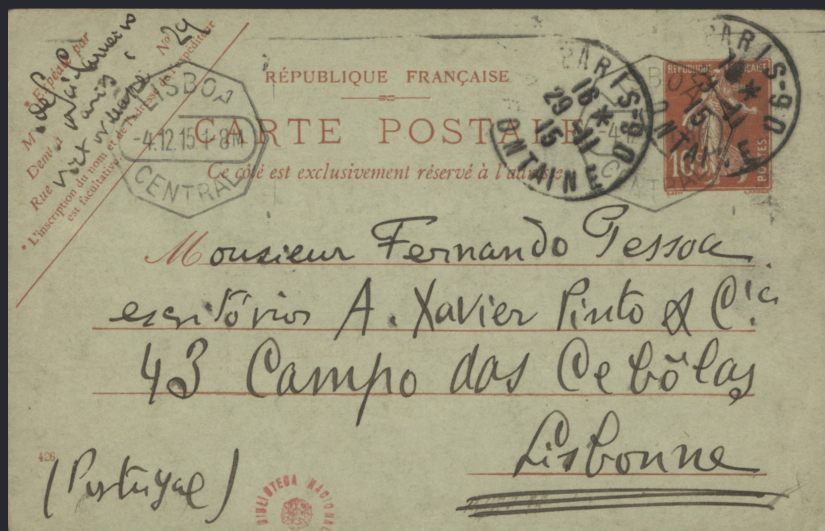 RÉPUBLIQUE FRANÇAISE
CARTE POSTALE
Ce côté est exclusivement réservé à l'adresse
M Expédié par
Dem
Rue
N° 29
* L'inscription du nom et de l'adresse de l'expéditeur
est facultative.
LISBOA
-4.12.15
CENTRAL
PARIS-90
16 *
29 -11
15
ONTAINE
PARIS-90
15
ONTAINE
RÉPUBLIQUE FRANÇAISE
10
POSTES
Monsieur Fernando Pessoa
escritórios A. Xavier Pinto & C.ia
43 Campo das Cebôlas
Lisbonne
(Portugal)
BIBLIOTECA NACIONAL